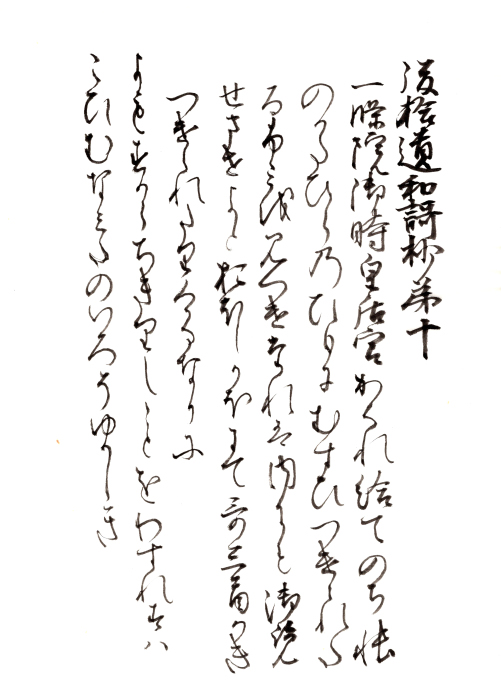 後拾遺和謌抄第十
一條院御時皇后宮かくれ給てのち帳
のかたひら乃ひもにむすひつけられた
るふみを見つけたれは内にも御覧
せさせよとおほしかほにて哥三首かき
つけられたりけるなかに
よもすからちきりしことをわすれすハ
こひむなみたのいろそゆかしき